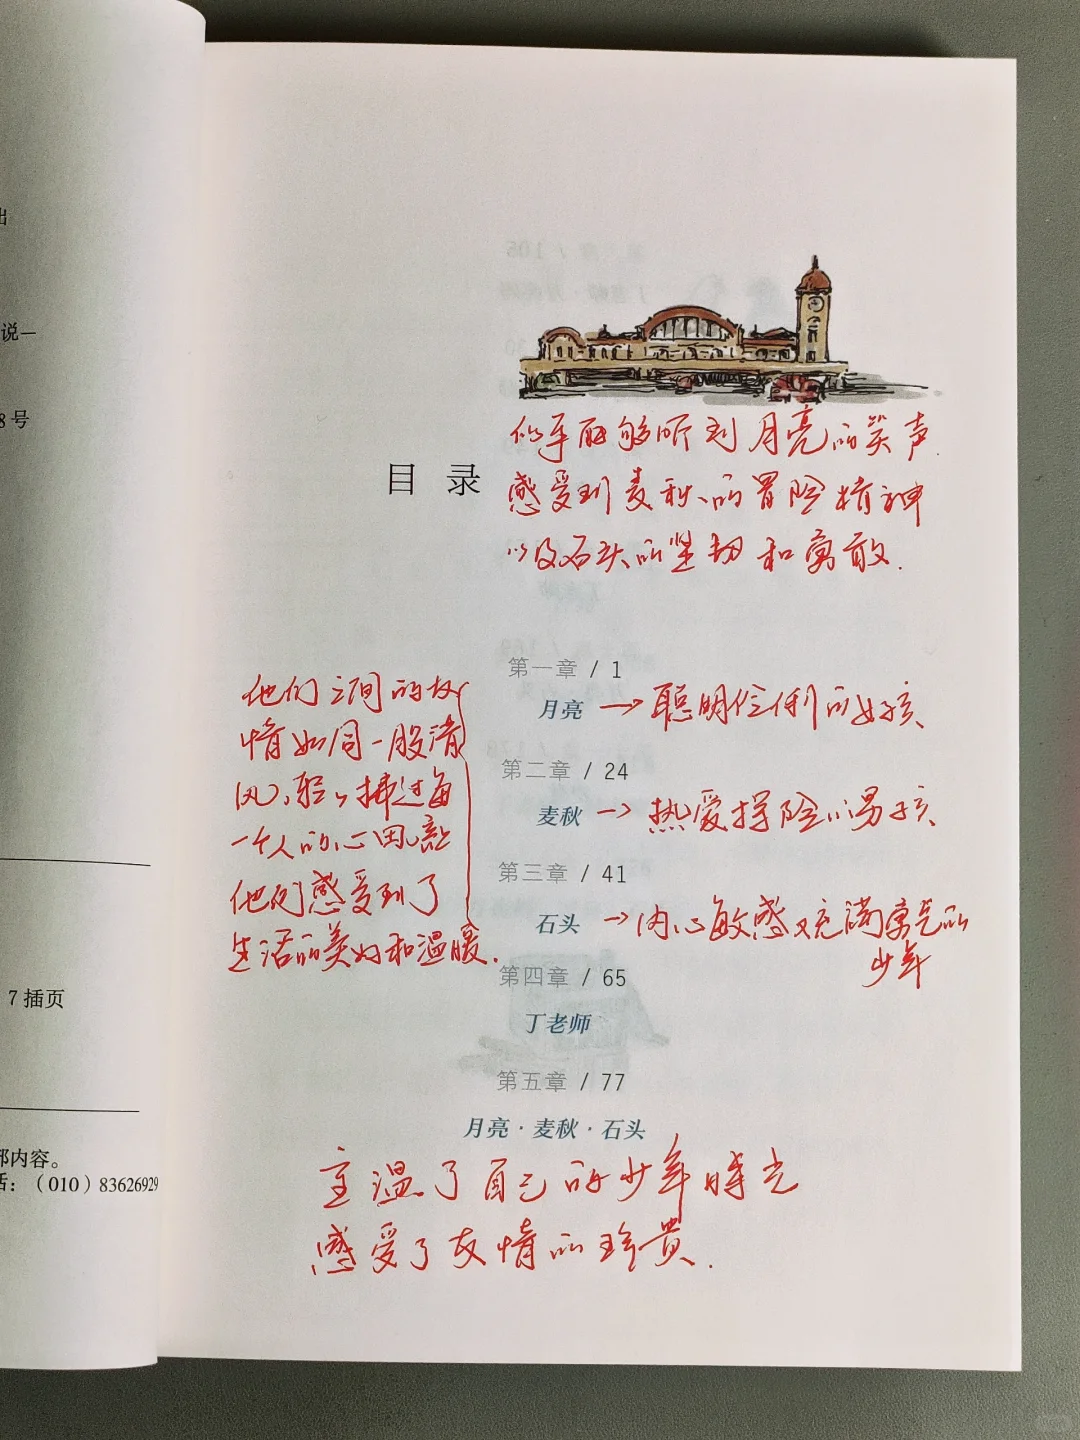 出
说—
8号
7插页
部内容。
话：（010）83626929
目录
似乎能够听到月亮的笑声
感受到麦秋的冒险精神
以及石头的坚韧和勇敢.
第一章 / 1
月亮 → 聪明伶俐的女孩
第二章 / 24
麦秋 → 热爱探险的男孩
第三章 / 41
石头 → 内心敏感又充满勇气的
少年
第四章 / 65
丁老师
第五章 / 77
月亮·麦秋·石头
他们之间的友
情如同一股清
风,轻轻拂过每
一个人的心田,让
他们感受到了
生活的美好和温暖.
重温了自己的少年時光
感受了友情的珍贵.